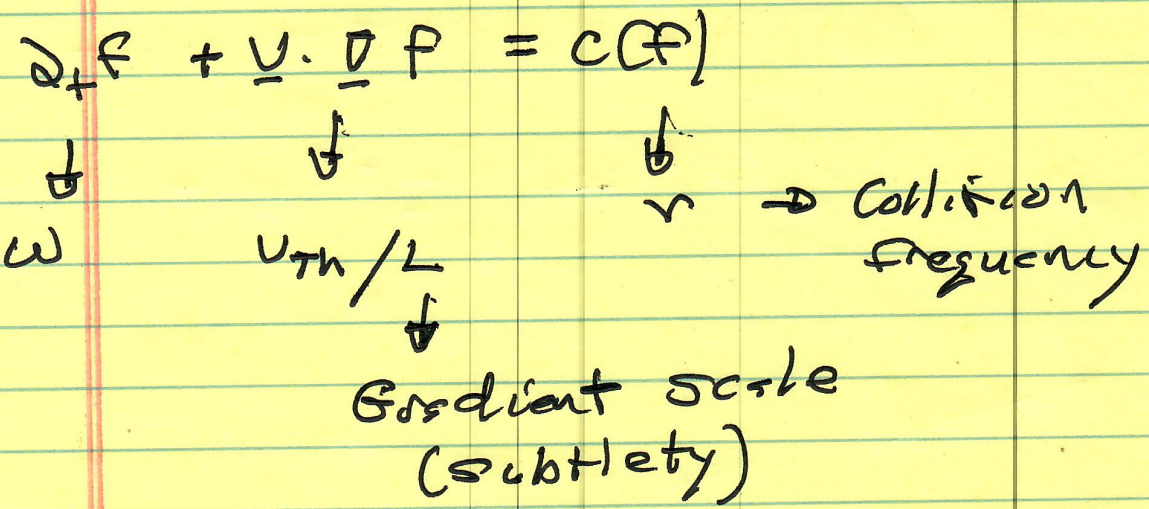 ∂_t f + v · ∇ f = C(f)
↓ ↓ ↓
ω v_Th / L ν → Collision
frequency
↓
Gradient scale
(subtlety)